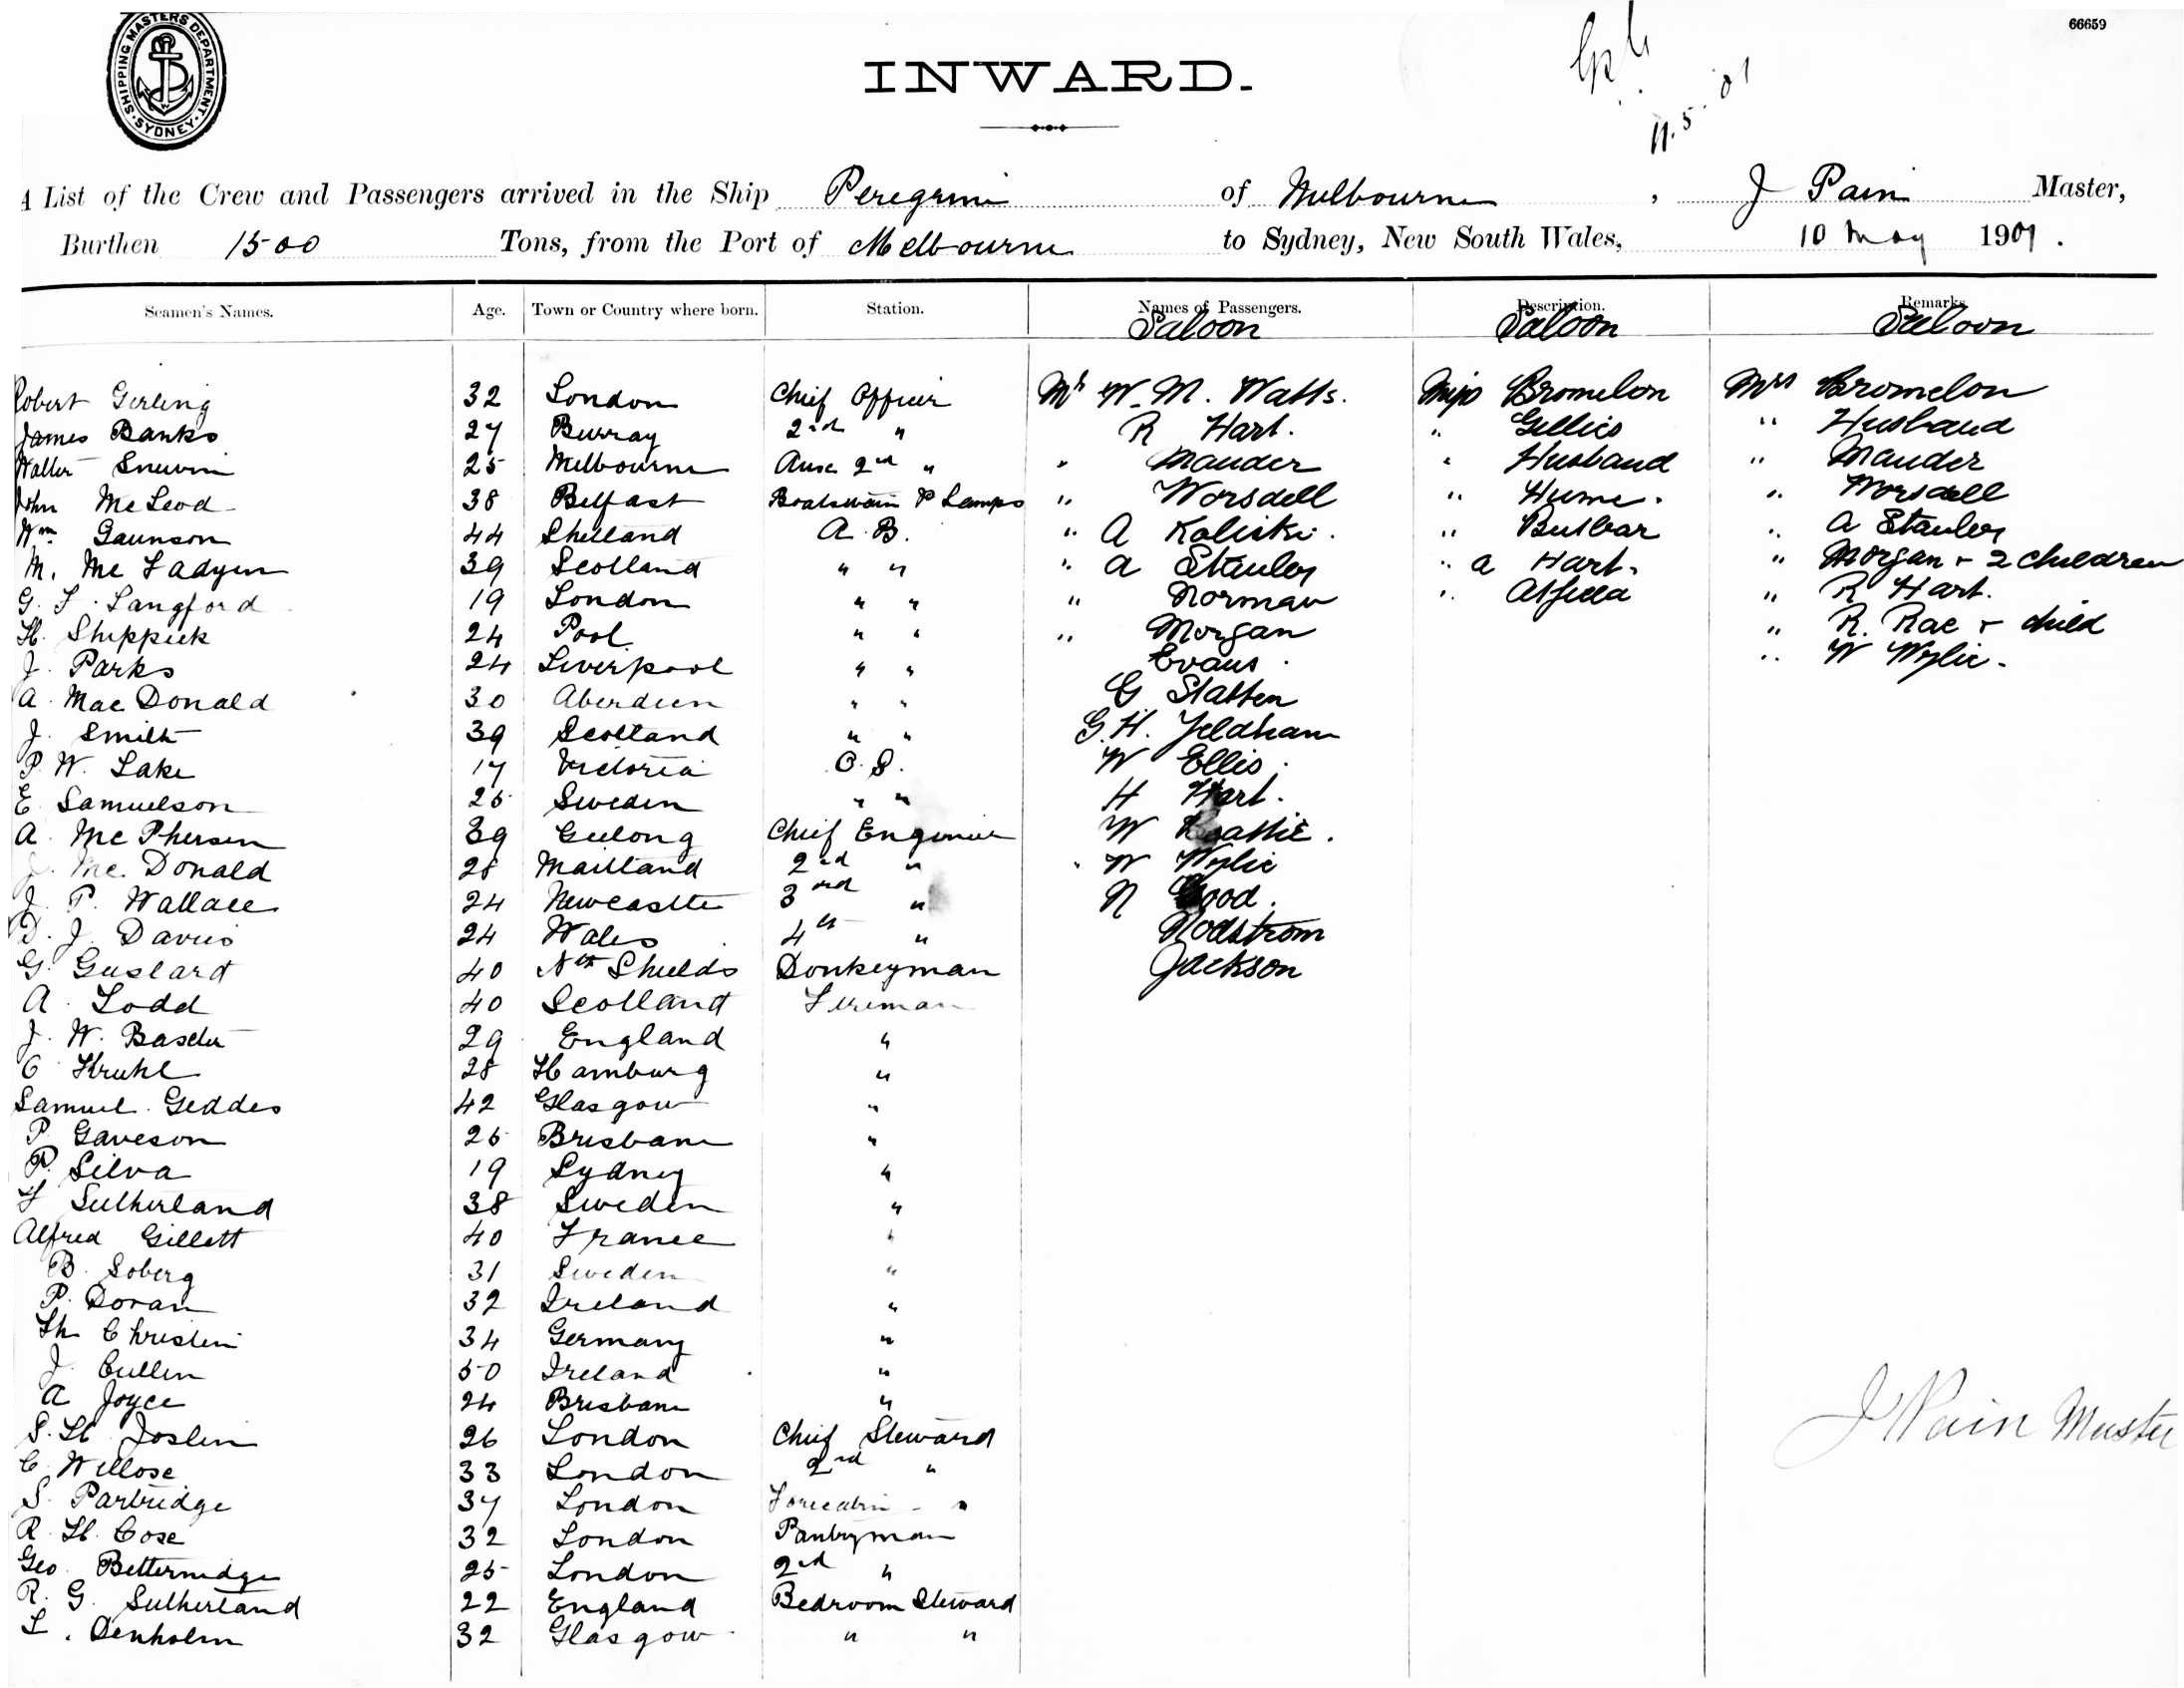 SHIPPING MASTERS DEPARTMENT. SYDNEY
66659
INWARD.
11.5.01
A List of the Crew and Passengers arrived in the Ship Peregrine of Melbourne, J Pain Master,
Burthen 1500 Tons, from the Port of Melbourne to Sydney, New South Wales, 10 May 1901.
Seamen's Names. Age. Town or Country where born. Station. Names of Passengers. Description. Remarks
Saloon Saloon Saloon
Robert Girling 32 London Chief Officer Mr W. M. Watts. Miss Bromelon Mrs Bromelon
James Banks 27 Burray 2nd " R Hart. " Gillies " Husband
Walter 25 Melbourne 2nd " " Mander " Husband " Mander
John McLeod 38 Belfast Boatswain & Lamps " Worsdell " Hume. " Worsdell
Wm Gaunson 44 Shetland A. B. " A Kaliski. " Butbar " A Stanley
M. Mc Fadyen 39 Scotland " " " A Stanley " A Hart. " Morgan + 2 children
G. F. Langford 19 London " " " Norman " " R Hart.
H. Shippick 24 Pool " " " Morgan " R. Rae + child
J. Parks 24 Liverpool " " Evans. " W Wylie.
A. Mac Donald 30 Aberdeen " " G Statten
J. Smith 39 Scotland " " G. H. Yeldham
P. W. Lake 17 Victoria O. S. W Ellis.
E Samuelson 25 Sweden " " H Hart.
A. Mc Phersen 39 Geelong Chief Engineer W Beattie.
J. Mc. Donald 28 Maitland 2nd " " W Wylie
J. P. Wallace 24 Newcastle 3rd " N Good.
D. J. Davies 24 Wales 4th " Nodstrom
G. Gustard 40 Nth Shields Donkeyman Jackson
A. Todd 40 Scotland Fireman
J. W. Baxter 29 England "
C Kruhl 28 Hamburg "
Samuel Geddes 42 Glasgow "
P. Gaveson 25 Brisbane "
P. Silva 19 Sydney "
F Sutherland 38 Sweden "
Alfred Gillett 40 France "
B. Soberg 31 Sweden "
P. Doran 32 Ireland "
Th Christen 34 Germany "
J. Cullen 50 Ireland "
A Joyce 24 Brisbane "
S. H. Joslin 26 London Chief Steward
J Pain Master
C. Willose 33 London 2nd "
S. Partridge 37 London Forecabin "
R. H. Cose 32 London Pantryman
Geo Betteridge 25 London 2nd "
R. G. Sutherland 22 England Bedroom Steward
L. Denholm 32 Glasgow " "